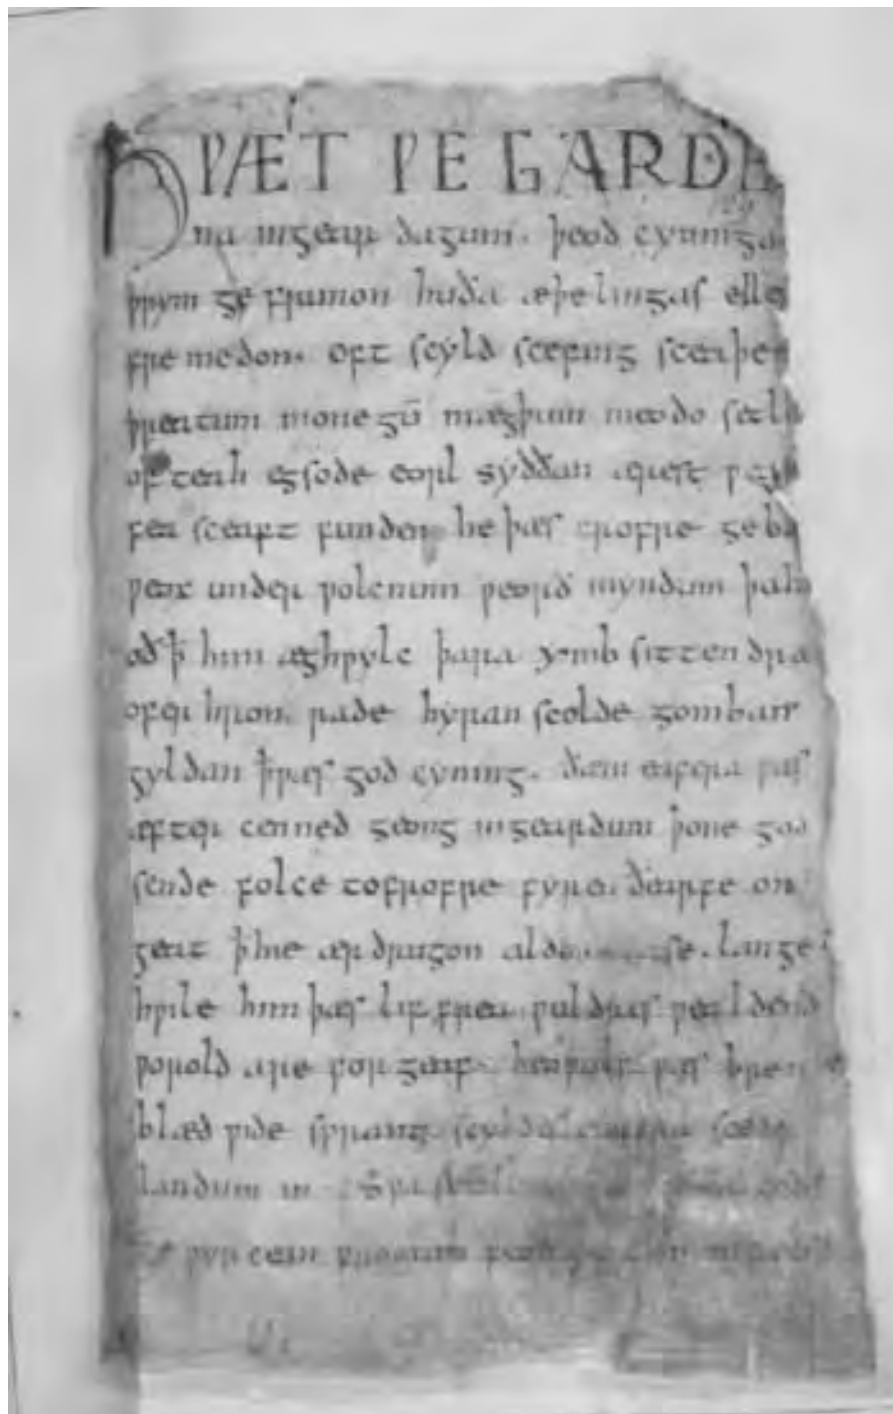 HǷÆT ǷE GARDE
na ingear dagum. þeod cyninga
þrym ge frunon huða æþelingas elle
fre medon. oft scyld scefing sceaþe
þreatum monegū mægþum meodo setla
of teah egsode eorl syððan ærest ƿea
fea sceaft funden he þæs frofre geba
ƿeox under ƿolcnum ƿeorð myndum þah
oð þ̄ him æghƿylc þara ymb sittendra
ofer hron rade hyran scolde gomban
gyldan þ̄ ƿæs god cyning. ðæm eafera ƿæs
æfter cenned geong ingeardum þone god
sende folce tofrofre fyren ðearfe on
geat þ̄ hie ær drugon aldor se. lange
hƿile him þæs lif frea ƿuldres ƿealdend
ƿorold are for geaf. beoƿulf ƿæs breme
blæd ƿide sprang scyldes eafera scede
landum in
ƿyrcean fromum feoh